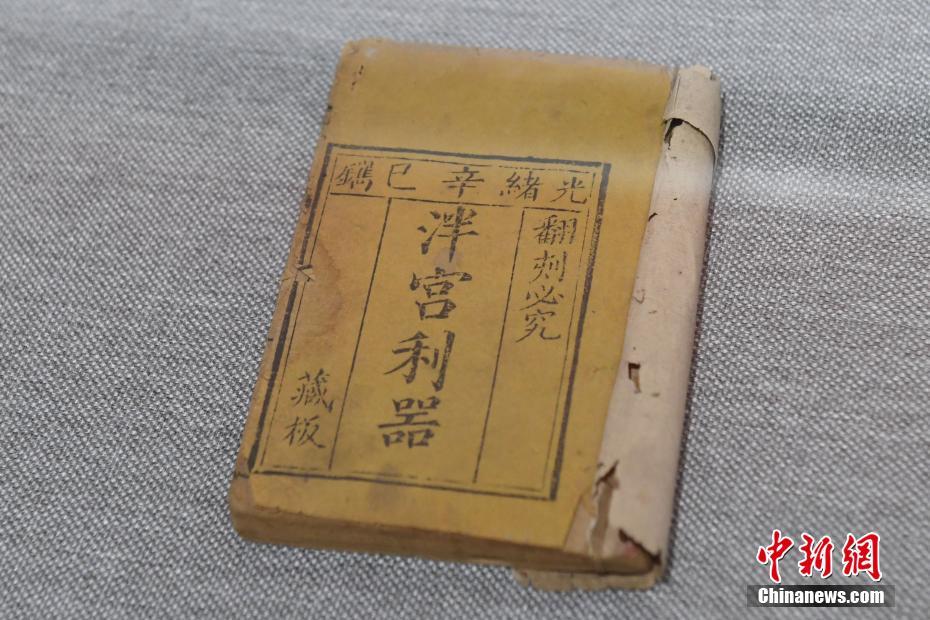 光緒辛巳鐫
翻刻必究
泮宮利器
藏板
中新網
Chinanews.com